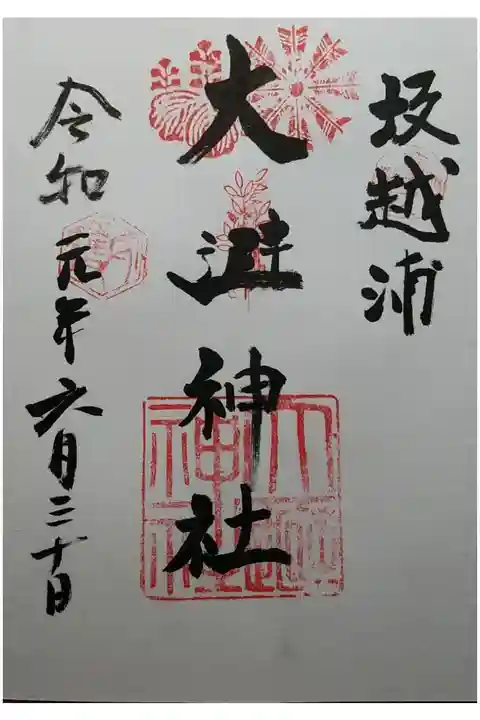 坂越浦
大避神社
令和元年六月三十日
大避
神社